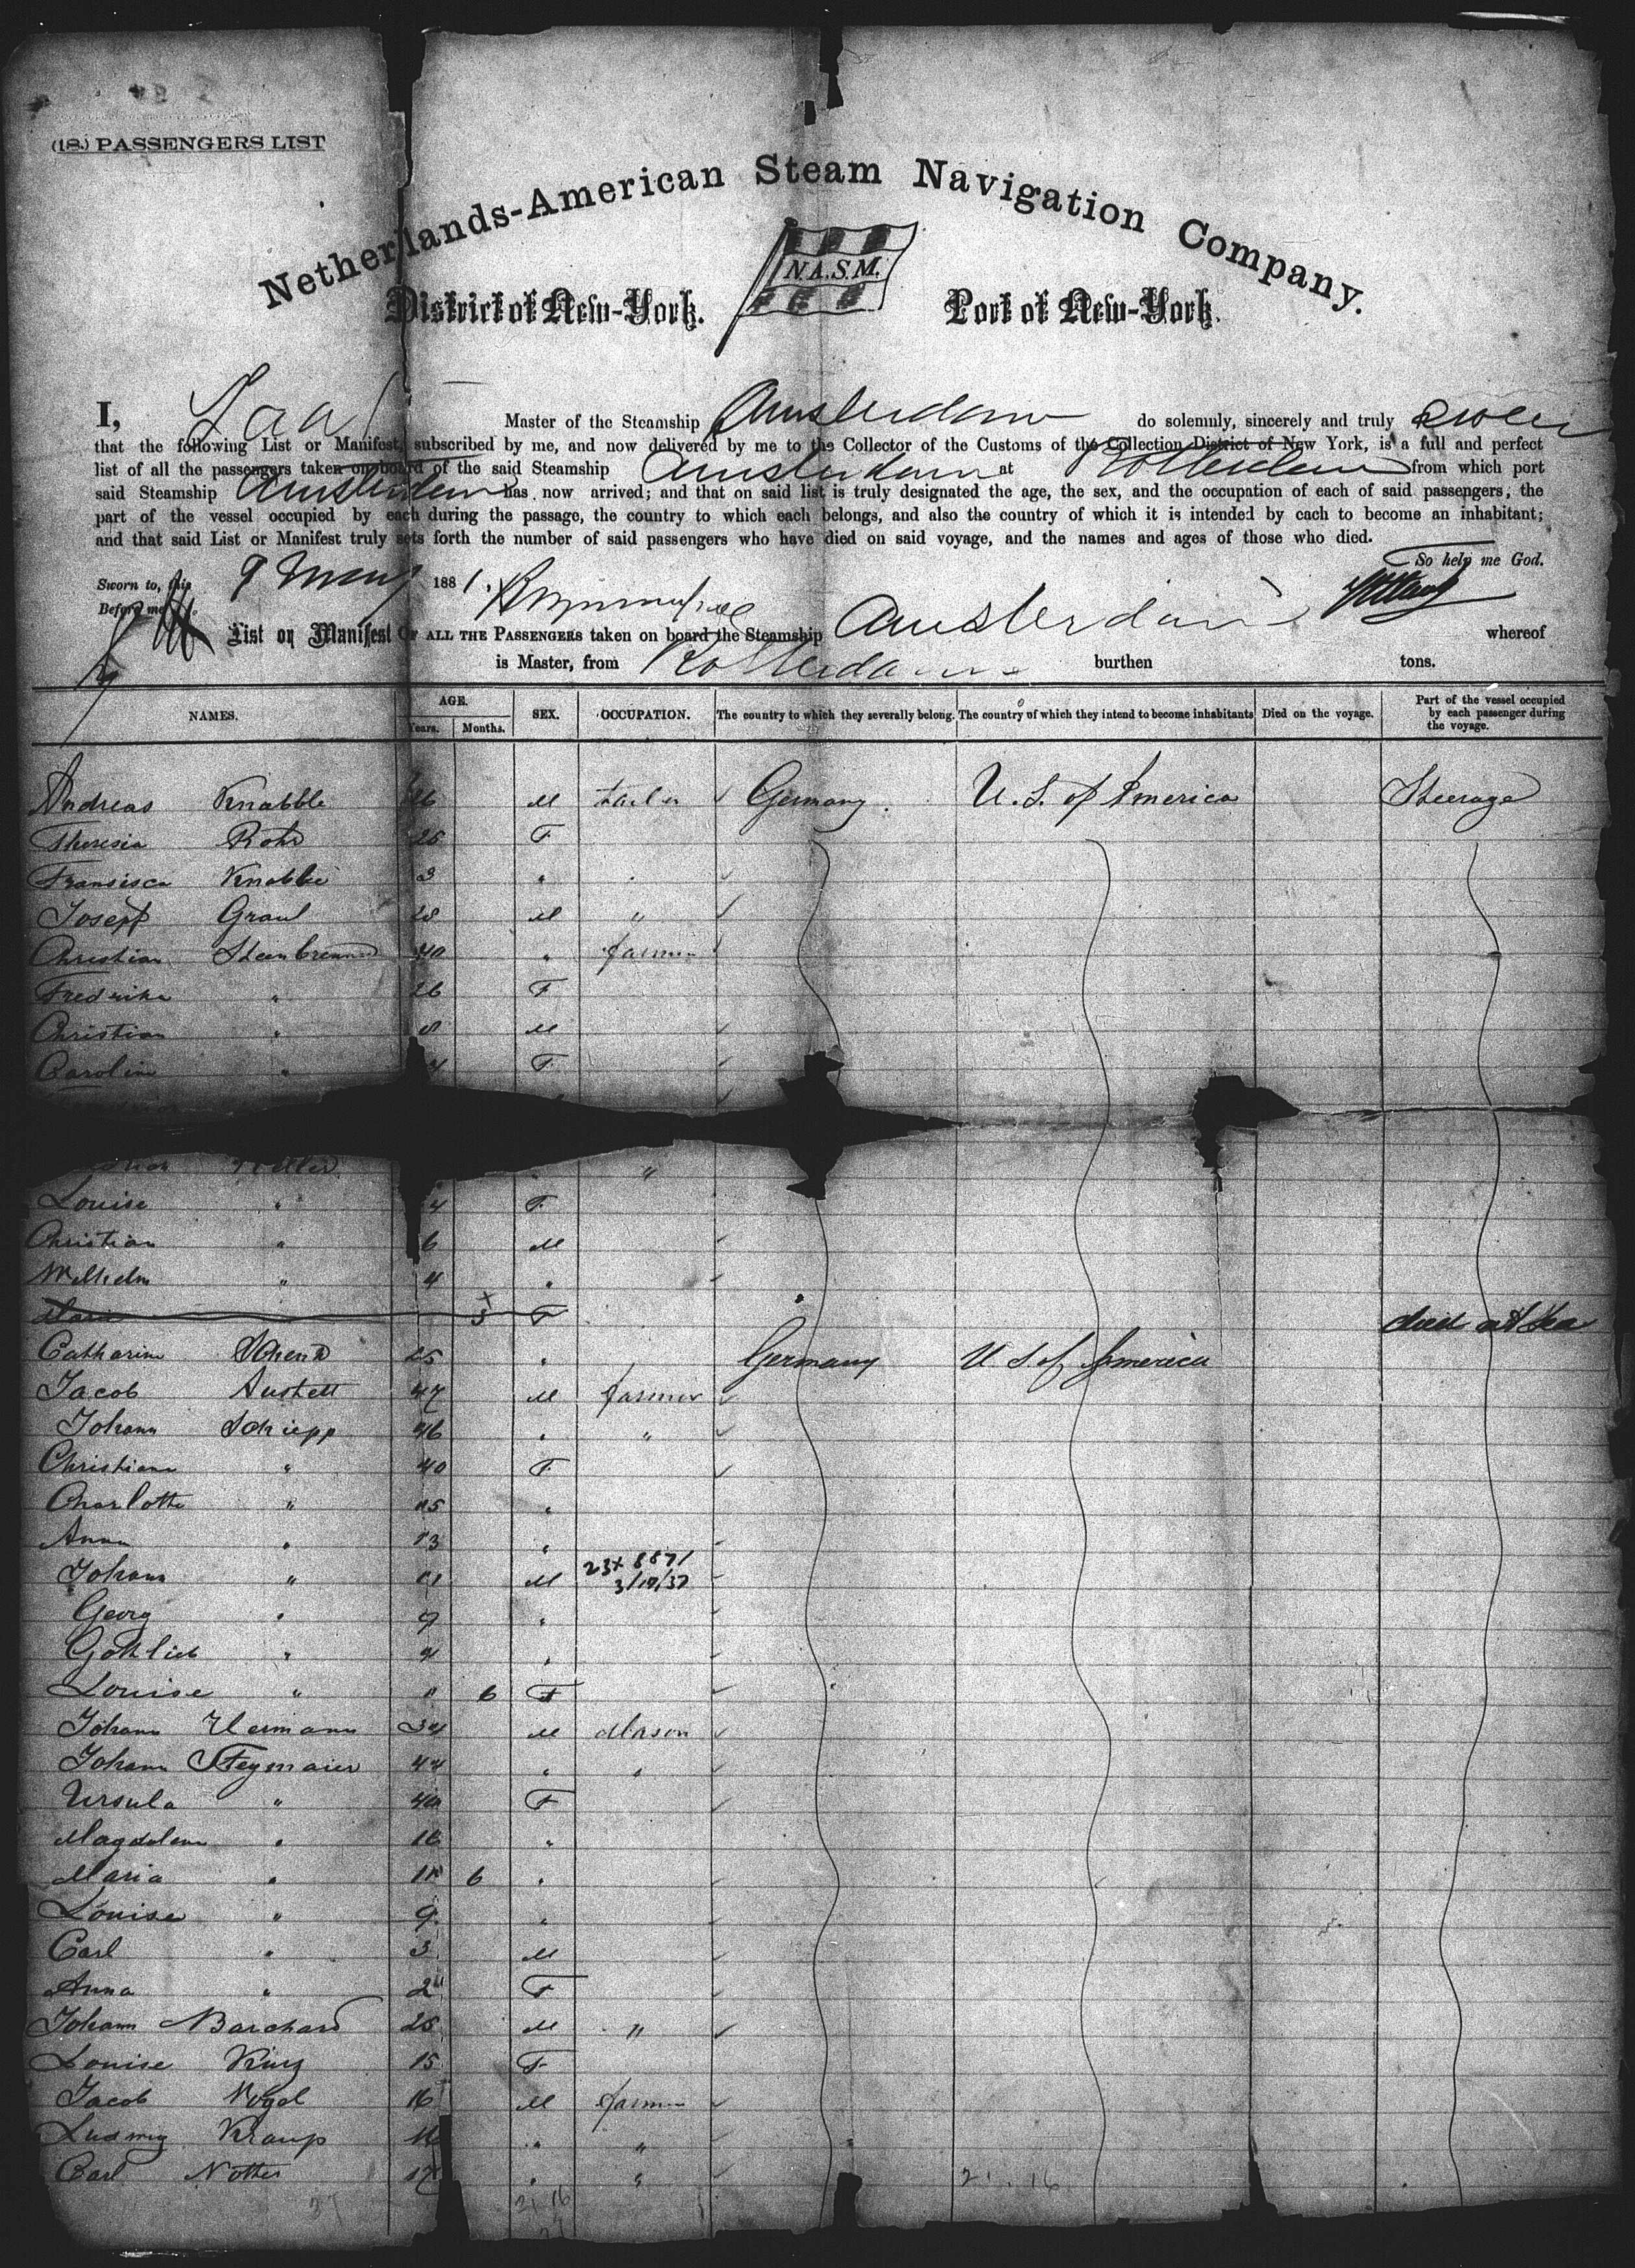 (18.) PASSENGERS LIST
Netherlands-American Steam Navigation Company.
N.A.S.M.
District of New-York. Port of New-York.
I, Master of the Steamship Amsterdam do solemnly, sincerely and truly swear
that the following List or Manifest, subscribed by me, and now delivered by me to the Collector of the Customs of the Collection District of New York, is a full and perfect
list of all the passengers taken on board of the said Steamship Amsterdam at Rotterdam from which port
said Steamship Amsterdam has now arrived; and that on said list is truly designated the age, the sex, and the occupation of each of said passengers, the
part of the vessel occupied by each during the passage, the country to which each belongs, and also the country of which it is intended by each to become an inhabitant;
and that said List or Manifest truly sets forth the number of said passengers who have died on said voyage, and the names and ages of those who died.
So help me God.
Sworn to, this 9 May 1881.
Before me
List or Manifest OF ALL THE PASSENGERS taken on board the Steamship Amsterdam whereof
is Master, from Rotterdam burthen tons.
NAMES. AGE. Years. Months. SEX. OCCUPATION. The country to which they severally belong. The country of which they intend to become inhabitants Died on the voyage. Part of the vessel occupied by each passenger during the voyage.
Andreas Knabble 26 M Germany U. S. of America Steerage
Theresia Rohr 25 F
Fransisca Knabble 3 "
Joseph Graul 28 M "
Christian 40 " farmer
Fredrike " 26 F
Christian " 8 M
Carolin " 4 F
"
Louise " 4 F
Christian " 6 M
Wilhelm " 4 "
Marie 3 F died at Sea
Catharine Schenk 25 " Germany U S of America
Jacob 47 M farmer
Johann Schiepp 46 " "
Christiane " 40 F
Charlotte " 15 "
Anna " 13 "
Johann " 11 M 23x 8871
3/10/37
Georg " 9 "
Gottlieb " 4 "
Louise " " 6 F
Johann Hermann 34 M Mason
Johann Stegmaier 44 " "
Ursula " 40 F
Magdalena " 16 "
Maria " 11 6 "
Louise " 9 "
Carl " 3 M
Anna " 2 F
Johann Barchard 25 M "
Louise King 15 F
Jacob Vogel 16 M farmer
Ludwig Kraup " "
Carl Notter 17 " "
21 . 16